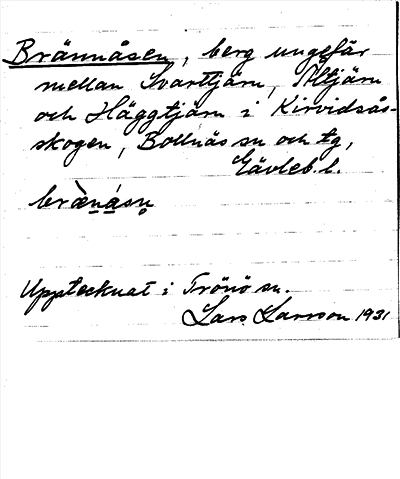 Brännåsen, berg ungefär
mellan Svarttjärn, Åltjärn
och Häggtjärn i Kirvidsås-
skogen, Bollnäs sn och tg,
Gävleb. l.
brä̀nåsn̥
Upptecknat i Trönö sn.
Lars Larsson 1931